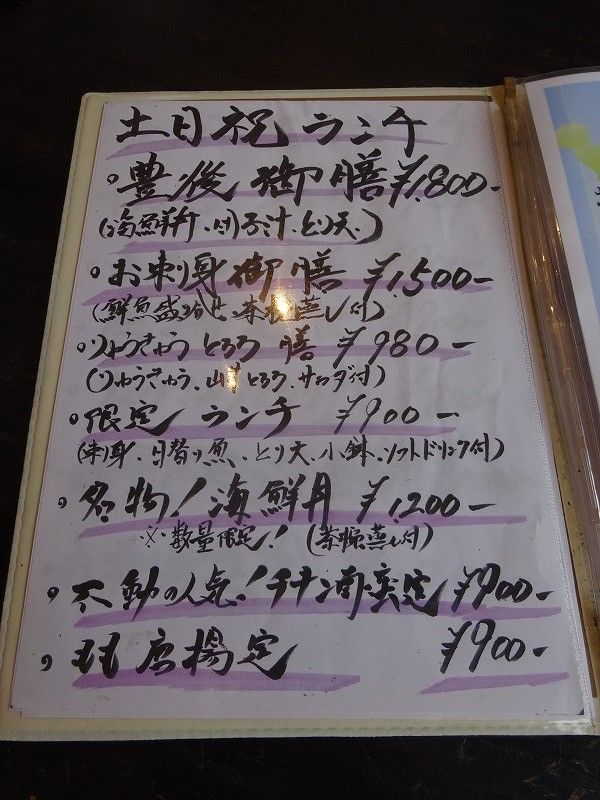 土日祝 ランチ
豊後 御膳 ¥1,800-
(海鮮丼、団子汁、とり天、)
お刺身御膳 ¥1500-
(鮮魚盛り合せ、茶椀蒸し付)
りゅうきゅう とろろ 膳 ¥980-
(りゅうきゅう、山芋とろろ、サラダ付)
限定 ランチ ¥900-
(刺身、日替り魚、とり天、小鉢、ソフトドリンク付)
名物!海鮮丼 ¥1200-
※数量限定! (茶椀蒸し付)
不動の人気!チキン南蛮定 ¥900-
唐揚定 ¥900-